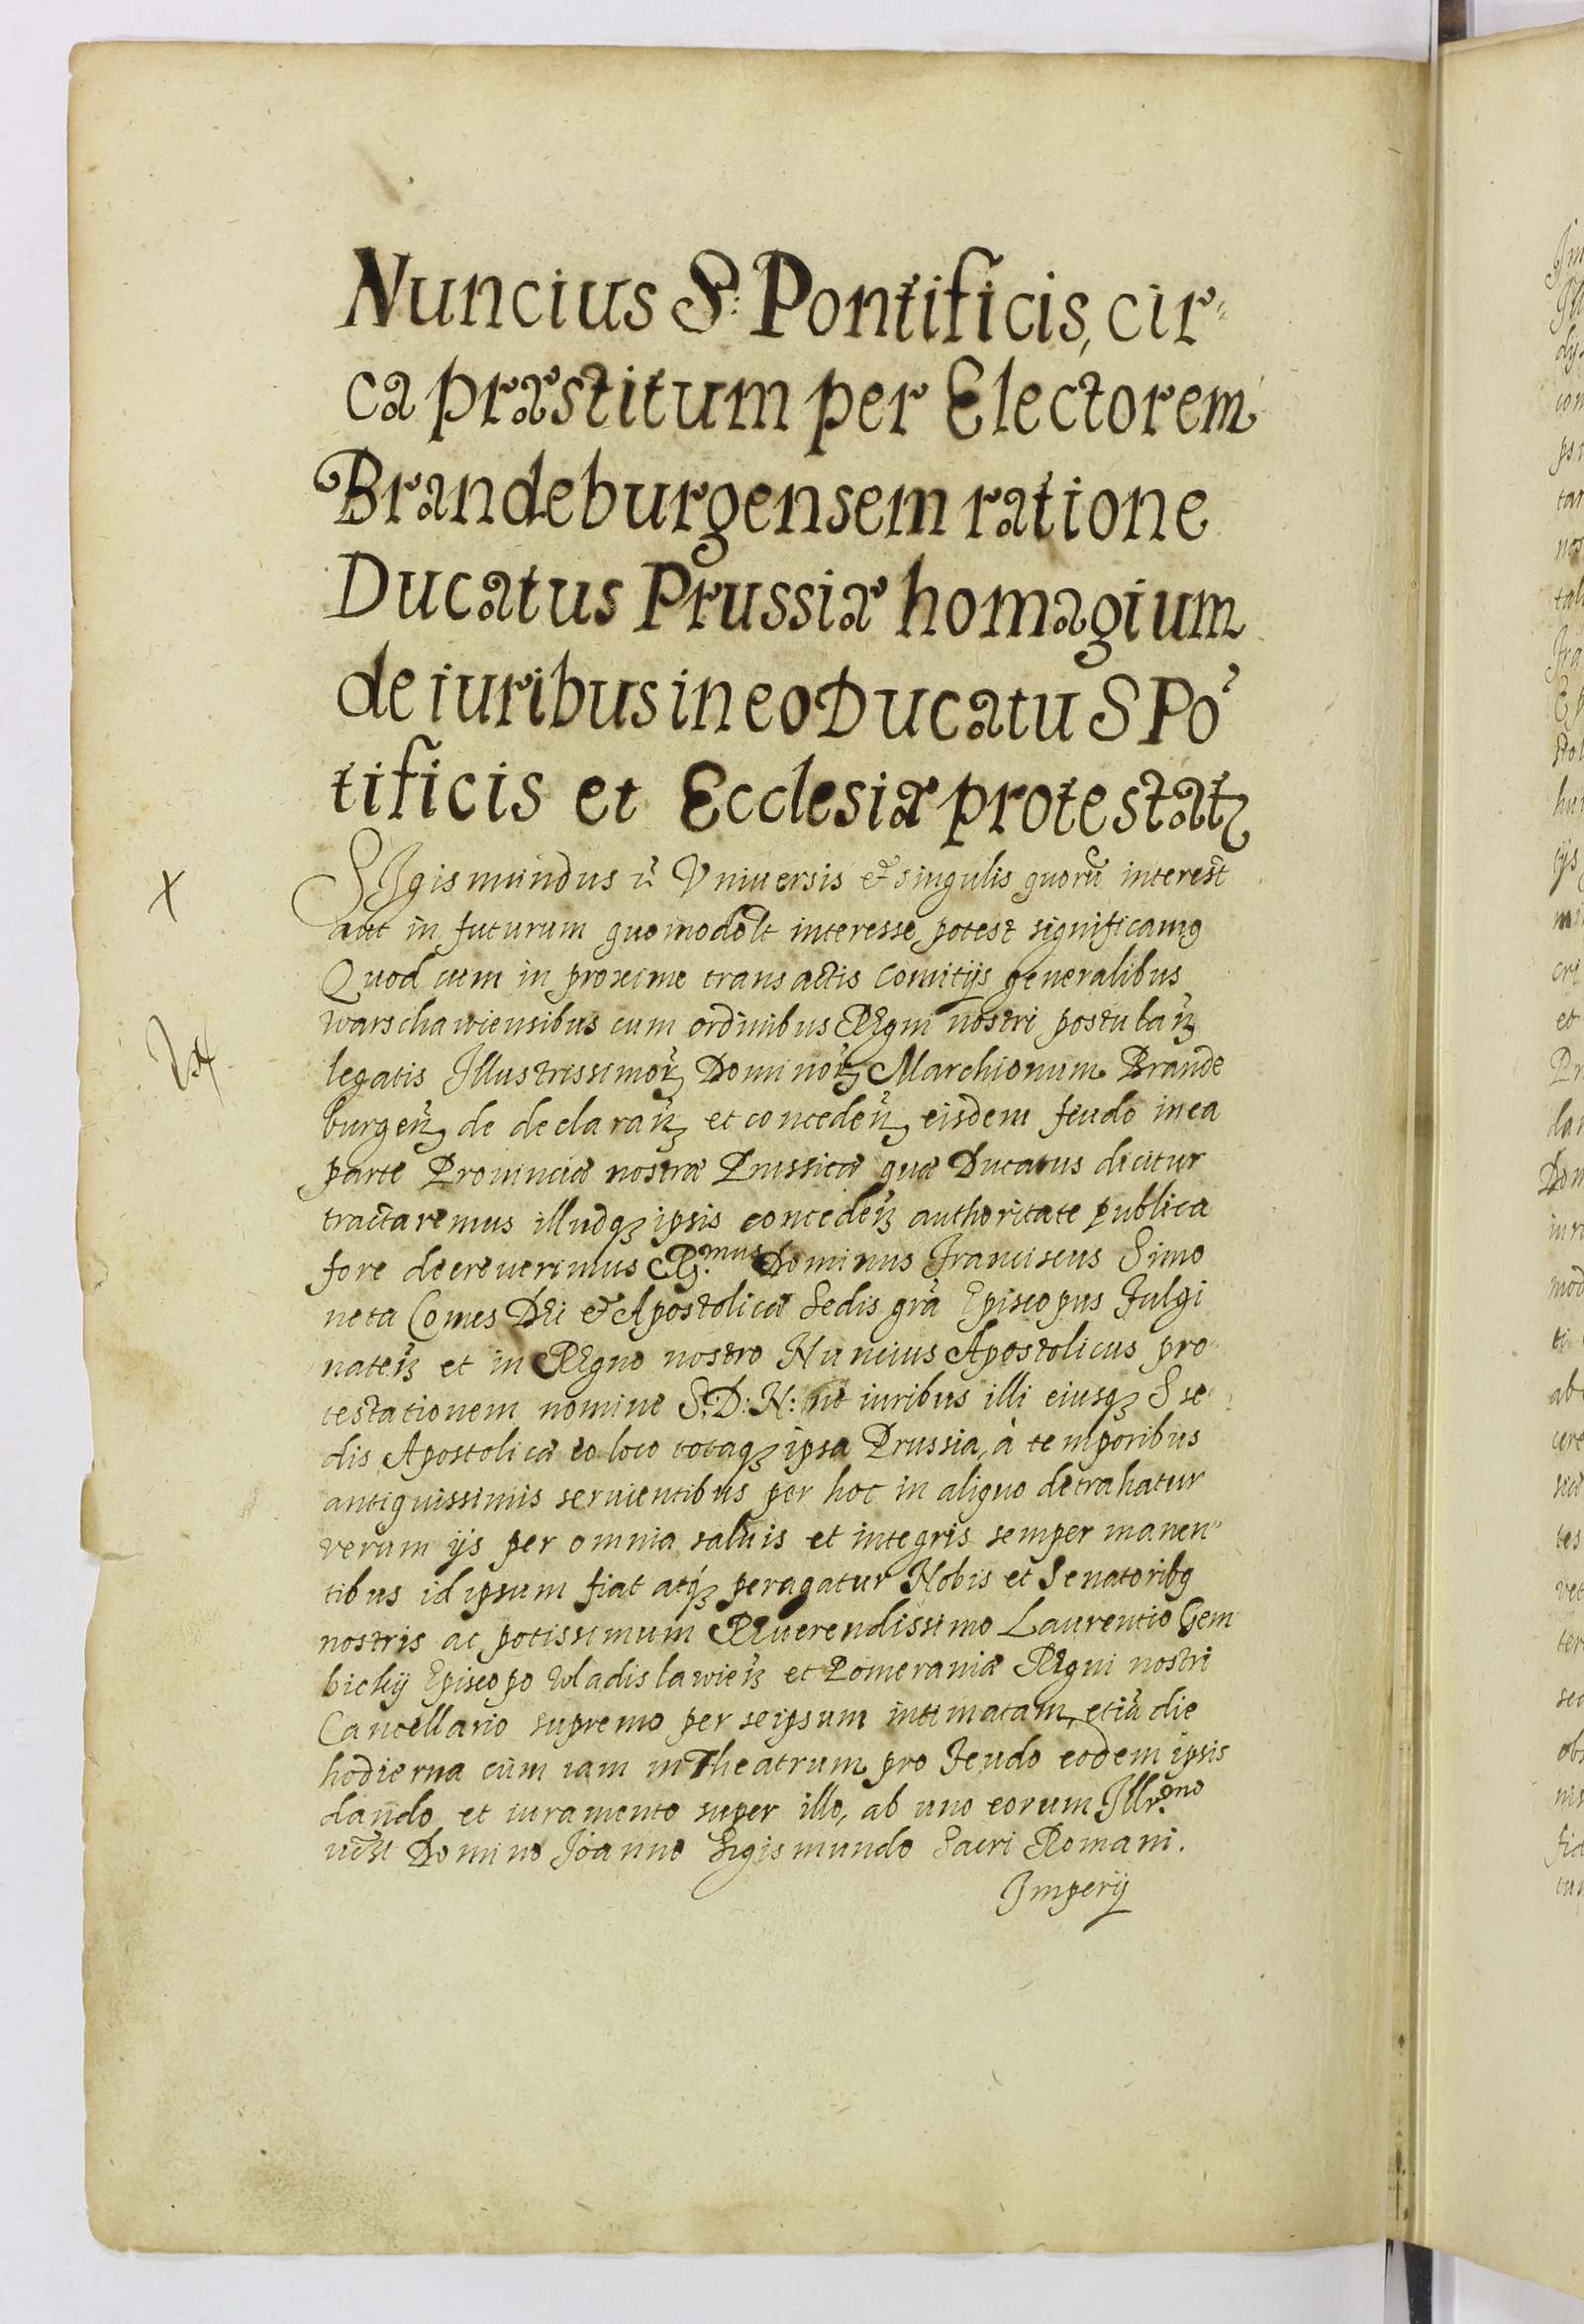 Nuncius S: Pontificis, cir=
ca præstitum per Electorem
Brandeburgensem ratione
Ducatus Prussiæ homagium
de iuribus in eo Ducatu S Põ
tificis et Ecclesiæ protestatꝛ
SIgismundus Vniuersis et singulis quorũ interest
aut in futurum quomodolt interesse potest significamꝰ
Quod cum in proxime transactis Comitijs generalibus
warschawiensibus cum ordinibus REgni nostri postulañ
legatis Illustrissimoꝝ Dominoꝝ Marchionum Brande
burgeñ de declarañ et concedeñ eisdem feudo in ea
parte Prouinciæ nostræ Prussiæ quæ Ducatus dicitur
tractaremus illudqꝫ ipsis concedeñ authoritate publica
fore decreuerimus R.mus Dominus Franciscus Simo
neta Comes DEi et Apostolicæ Sedis grã Episcopus Fulgi
nateñ et in REgno nostro Nuncius Apostolicus pro
testationem nomine S:D:N: ne iuribus illi eiusqꝫ S se
dis Apostolicæ eo loco totaqꝫ ipsa Prussia, à temporibus
antiquissimis seruientibus per hoc in aliquo detrahatur
verum ijs per omnia saluis et integris semper manen=
tibus id ipsum fiat atqꝫ peragatur Nobis et Senatoribꝰ
nostris ac potissimum REuerendissimo Laurentio Gem
bickij Episcopo Wladislawieñ et Pomeraniæ REgni nostri
Cancellario supremo per seipsum intimatam, etiã die
hodierna cum iam in Theatrum pro Feudo eodem ipsis
dando et iuramento super illo, ab uno eorum Illr.mo
Domino Joanne Sigismundo Sacri Romani.
Imperij